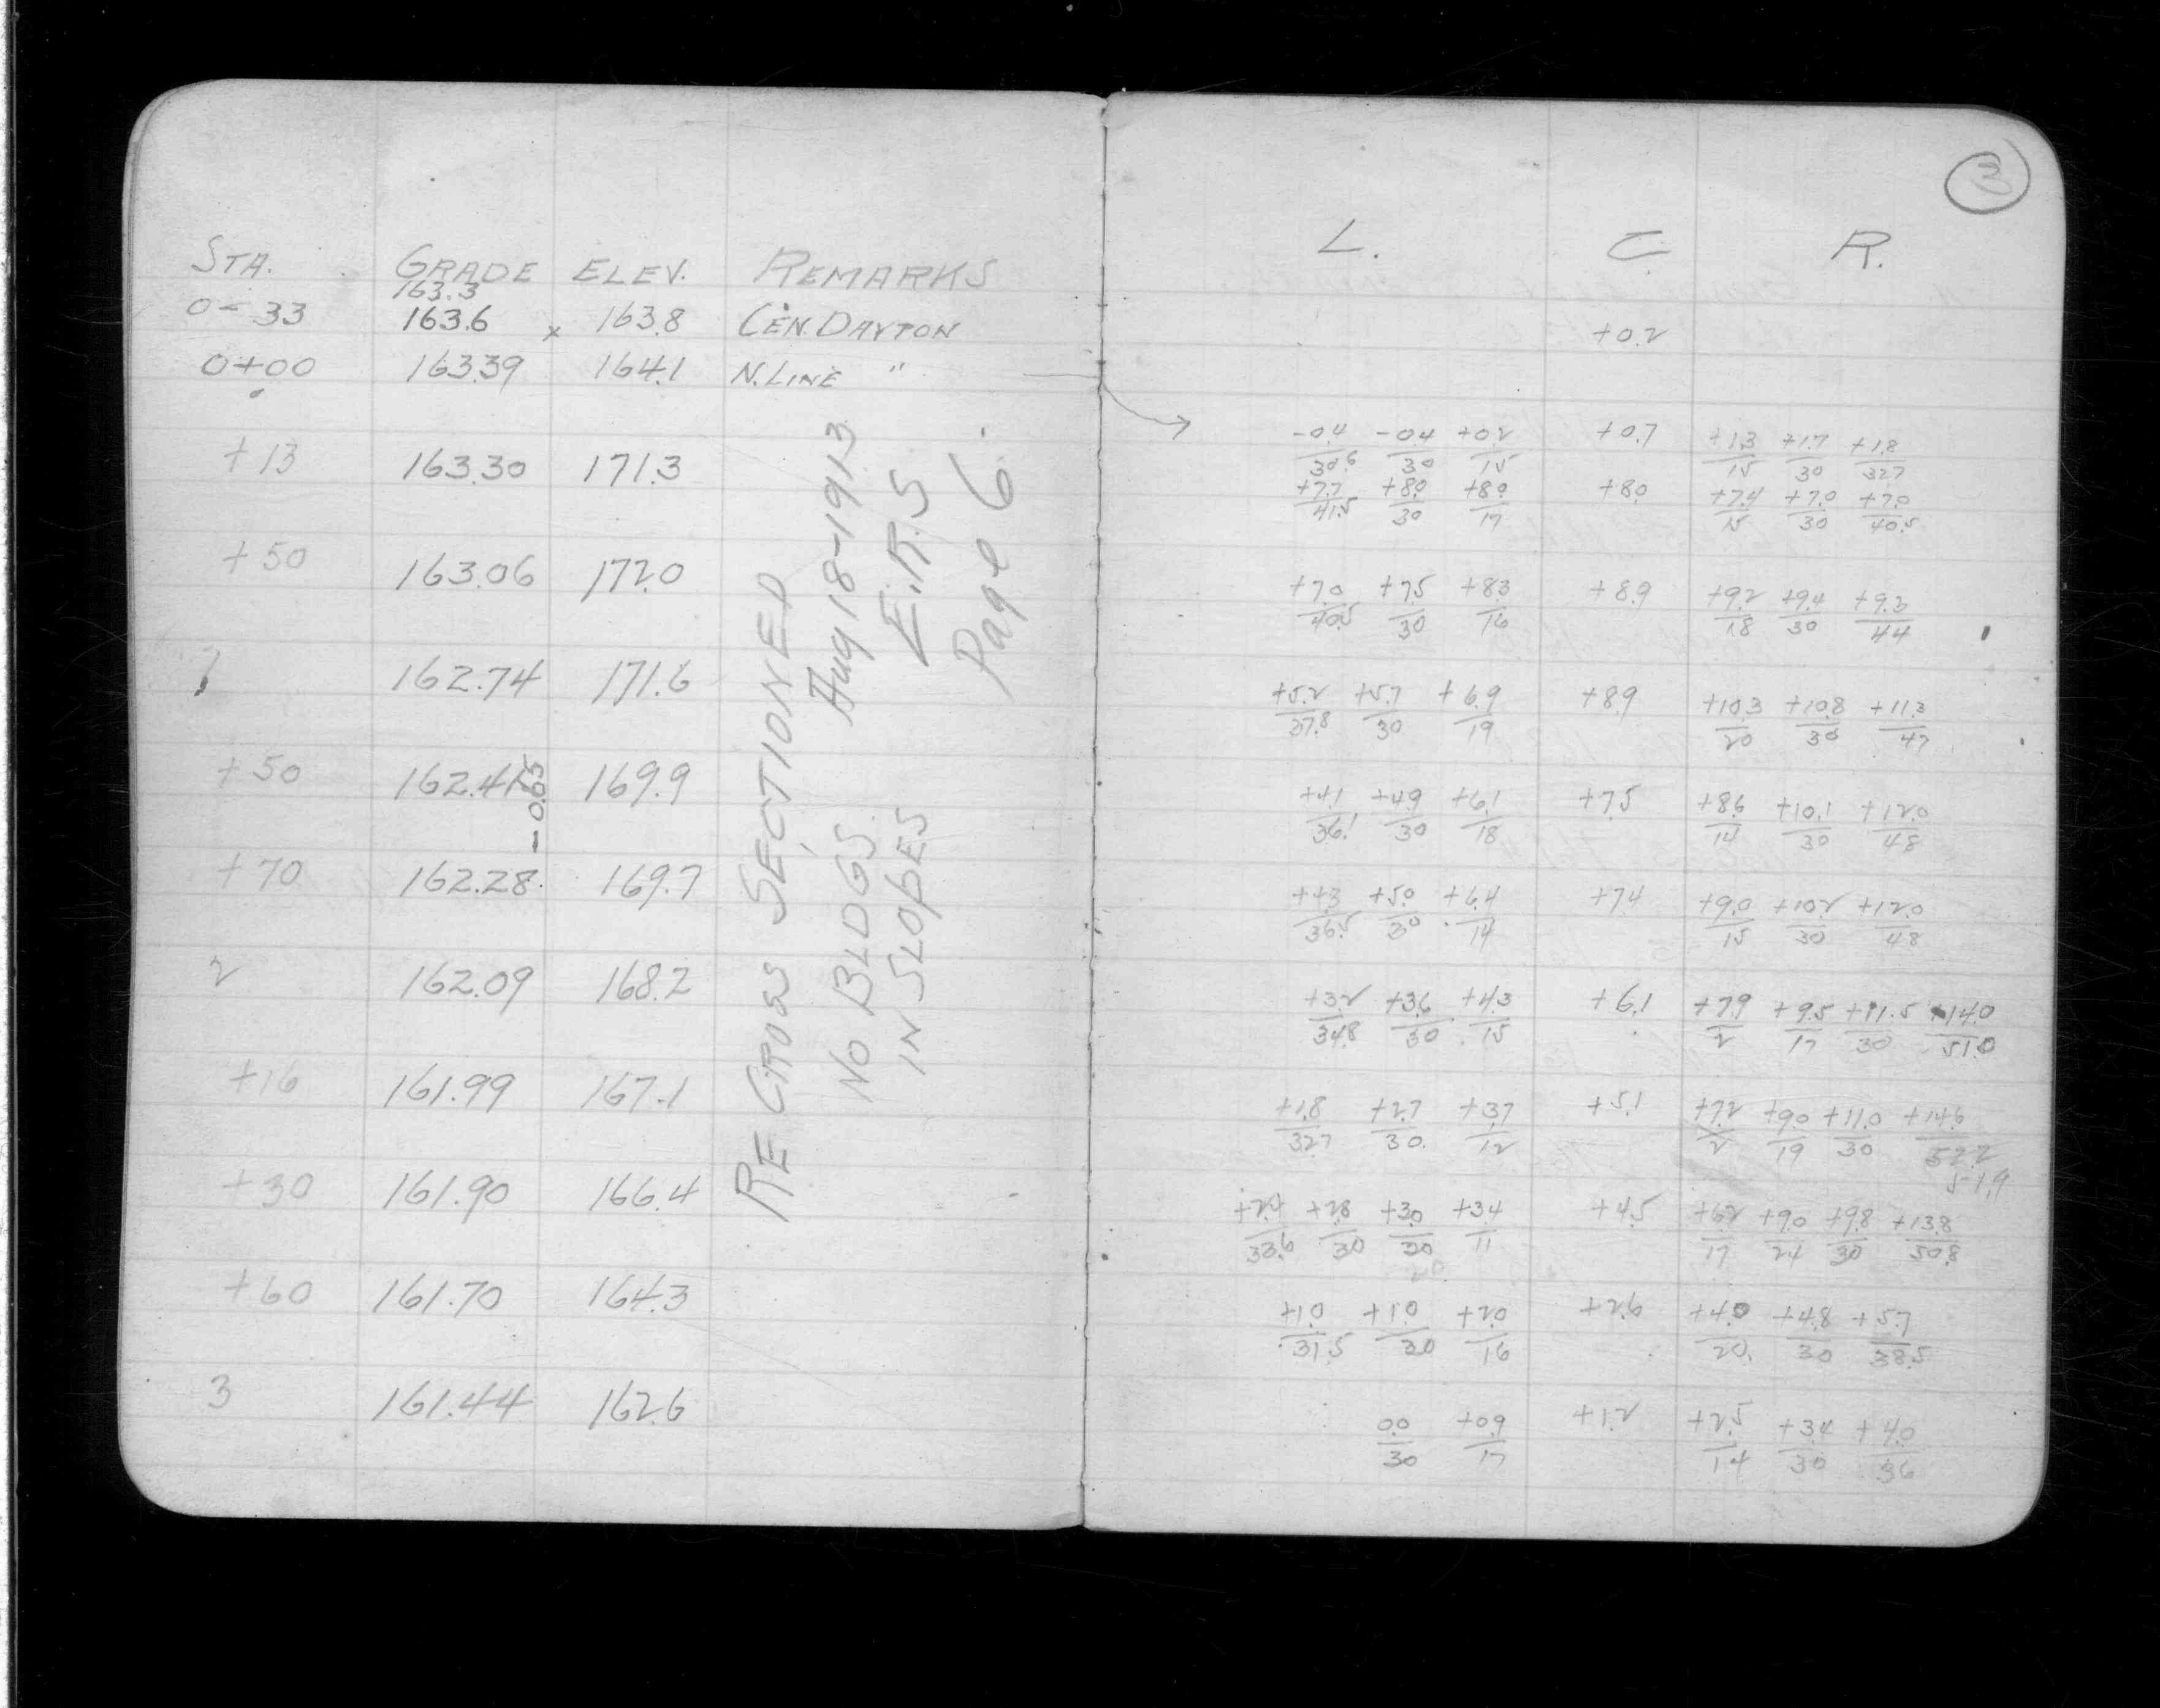 STA. GRADE ELEV. REMARKS
163.3
0-33 163.6 x 163.8 CEN. DAYTON
0+00 163.39 164.1 N. LINE "
+13 163.30 171.3
+50 163.06 172.0
1 162.74 171.6
+50 162.41 169.9
-0.65
+70 162.28 169.7
2 162.09 168.2
+16 161.99 167.1
+30 161.90 166.4
+60 161.70 164.3
3 161.44 162.6
RE CROSS SECTIONED
Aug 18-1913
E.R.S
Page 6
NO BLDGS.
IN SLOPES
3
L. C. R.
+0.2
-0.4 -0.4 +0.2 +0.7 +1.3 +1.7 +1.8
30.6 30 15 15 30 32.7
+7.7 +8.0 +8.0 +8.0 +7.4 +7.0 +7.0
41.5 30 17 15 30 40.5
+7.0 +7.5 +8.3 +8.9 +9.2 +9.4 +9.3
40.5 30 16 18 30 44
+5.2 +5.7 +6.9 +8.9 +10.3 +10.8 +11.3
37.8 30 19 20 30 47
+4.1 +4.9 +6.1 +7.5 +8.6 +10.1 +12.0
36.1 30 18 14 30 48
+4.3 +5.0 +6.4 +7.4 +9.0 +10.2 +12.0
36.5 30 14 15 30 48
+3.2 +3.6 +4.3 +6.1 +7.9 +9.5 +11.5 +14.0
34.8 30 15 2 17 30 51.0
+1.8 +2.7 +3.7 +5.1 +7.2 +9.0 +11.0 +14.6
32.7 30 12 2 19 30 52.2
51.9
+2.8 +3.0 +3.4 +4.5 +6.2 +9.0 +9.8 +13.8
33.6 30 20 11 17 24 30 50.8
20
+1.0 +1.0 +2.0 +2.6 +4.0 +4.8 +5.7
31.5 30 16 20 30 38.5
0.0 +0.9 +1.2 +2.5 +3.4 +4.0
30 17 14 30 36